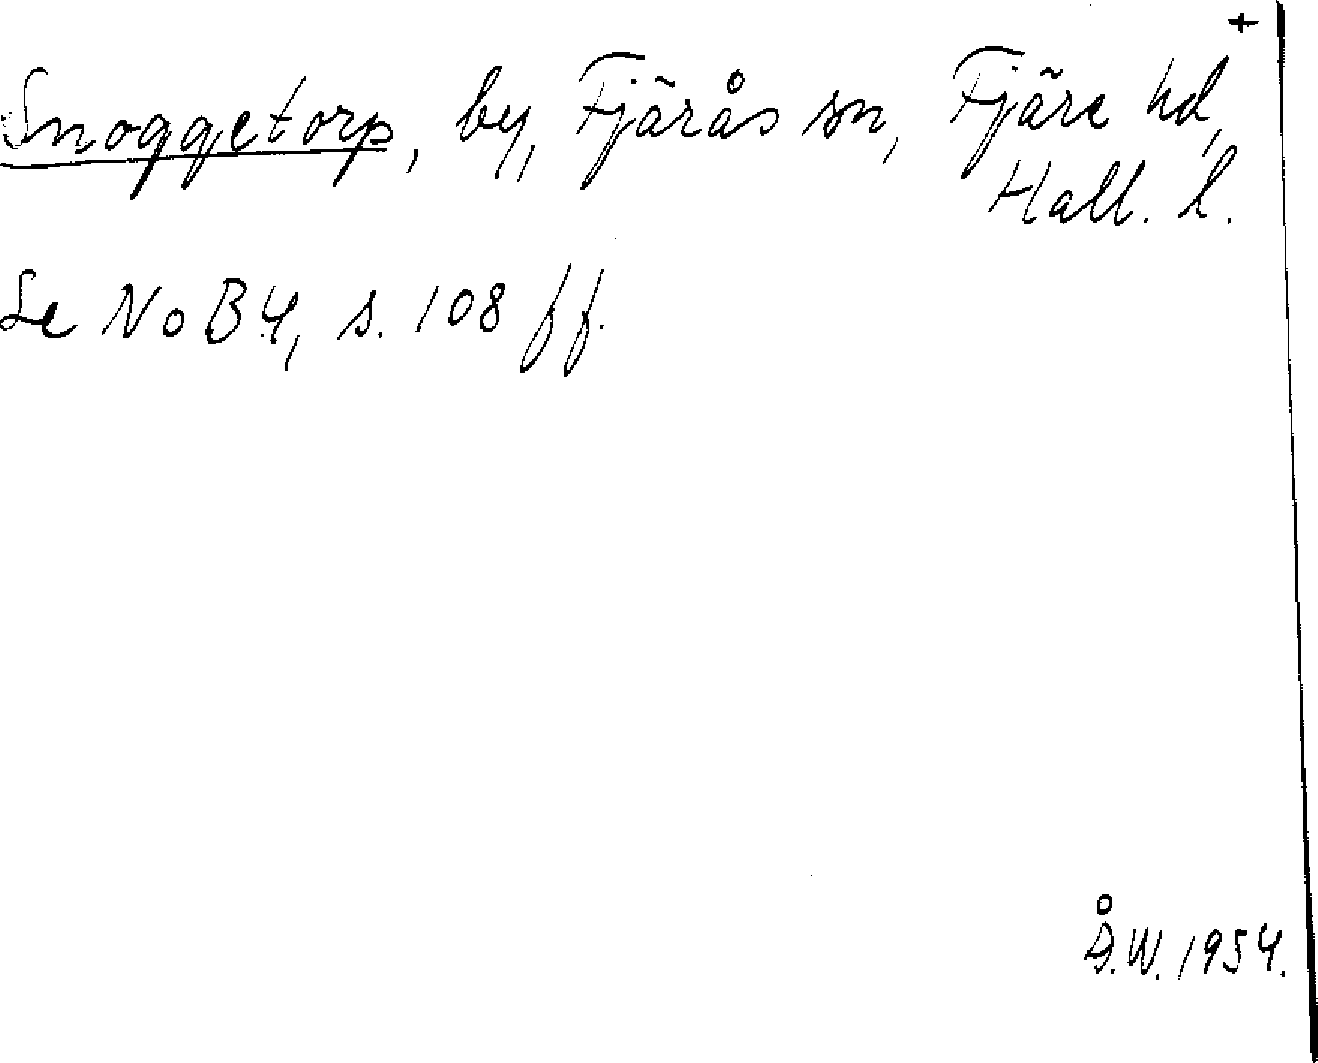 +
Snoggetorp, by, Fjärås sn, Fjäre hd,
Hall. l.
Se NoB 4, s. 108 ff.
Å.W. 1954.